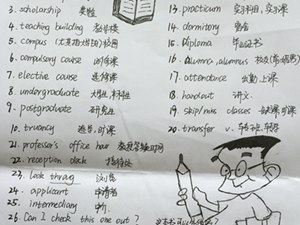 3. scholarship 奖学金
4. teaching building 教学楼
5. campus (大学、校园的)校园
6. compulsory course 必修课
7. elective course 选修课
8. undergraduate 大学生,本科生
9. postgraduate 研究生
10. truency 逃学,旷课
21. professor's office hour
22. reception desk
23. look throug 浏览
24. applicant 申请者
25. intermediary 中介
26. Can I check this one out?
13. practicum 实习科目,实习课
14. dormitory 宿舍
15. Diploma 毕业证书
16. Alumna, alumnus 校友
17. attendance 出勤,上课
18. handout 讲义
19. skip/miss classes
20. transfer v.